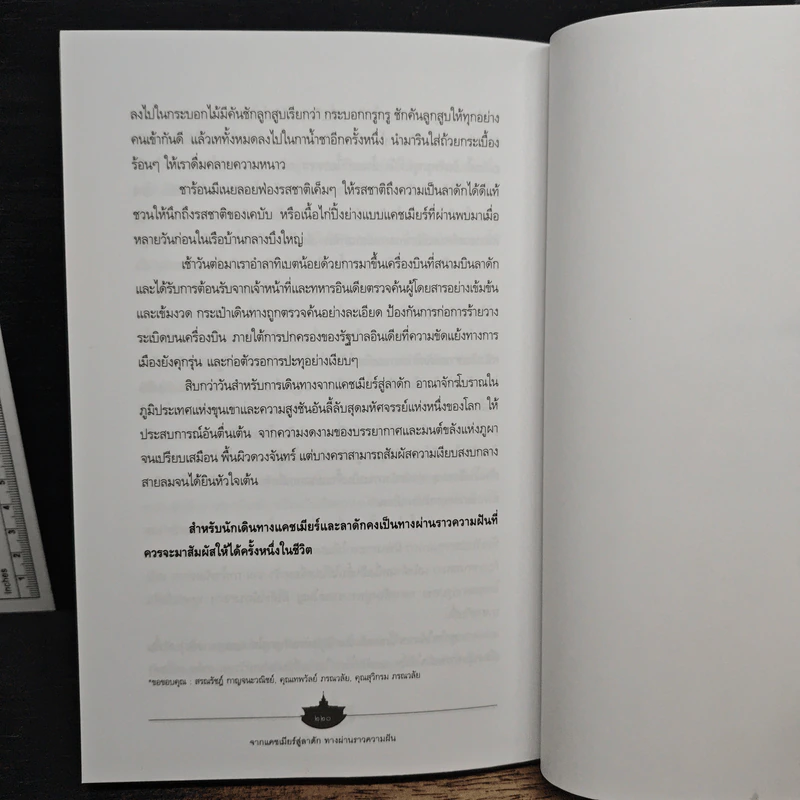 ลงไปในกระบอกไม้มีคันชักลูกสูบเรียกว่า กระบอกกรูกรู ชักคันลูกสูบให้ทุกอย่าง
คนเข้ากันดี แล้วเททั้งหมดลงไปในกาน้ำชาอีกครั้งหนึ่ง นำมารินใส่ถ้วยกระเบื้อง
ร้อนๆ ให้เราดื่มคลายความหนาว
ชาร้อนมีเนยลอยฟ่องรสชาติเค็มๆ ให้รสชาติถึงความเป็นลาดักได้ดีแท้
ชวนให้นึกถึงรสชาติของเคบับ หรือเนื้อไก่ปิ้งย่างแบบแคชเมียร์ที่ผ่านพบมาเมื่อ
หลายวันก่อนในเรือบ้านกลางบึงใหญ่
เช้าวันต่อมาเราอำลาทิเบตน้อยด้วยการมาขึ้นเครื่องบินที่สนามบินลาดัก
และได้รับการต้อนรับจากเจ้าหน้าที่และทหารอินเดียตรวจค้นผู้โดยสารอย่างเข้มข้น
และเข้มงวด กระเป๋าเดินทางถูกตรวจค้นอย่างละเอียด ป้องกันการก่อการร้ายวาง
ระเบิดบนเครื่องบิน ภายใต้การปกครองของรัฐบาลอินเดียที่ความขัดแย้งทางการ
เมืองยังคุกรุ่น และก่อตัวรอการปะทุอย่างเงียบๆ
สิบกว่าวันสำหรับการเดินทางจากแคชเมียร์สู่ลาดัก อาณาจักรโบราณใน
ภูมิประเทศแห่งขุนเขาและความสูงชันอันลี้ลับสุดมหัศจรรย์แห่งหนึ่งของโลก ให้
ประสบการณ์อันตื่นเต้น จากความงดงามของบรรยากาศและมนต์ขลังแห่งภูผา
จนเปรียบเสมือน พื้นผิวดวงจันทร์ แต่บางคราสามารถสัมผัสความเงียบสงบกลาง
สายลมจนได้ยินหัวใจเต้น
สำหรับนักเดินทางแคชเมียร์และลาดักคงเป็นทางผ่านราวความฝันที่
ควรจะมาสัมผัสให้ได้ครั้งหนึ่งในชีวิต
*ขอขอบคุณ : สรณรัชฎ์ กาญจนะวณิชย์, คุณเทพวัลย์ ภรณวลัย, คุณสุวิกรม ภรณวลัย
๒๒๐
จากแคชเมียร์สู่ลาดัก ทางผ่านราวความฝัน
Inches
1
2
3
4
5